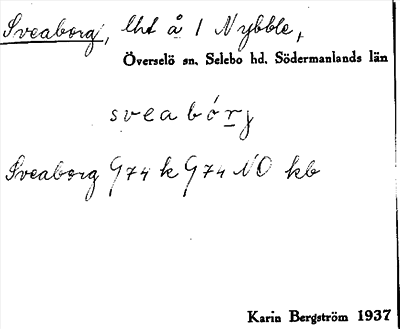 Sveaborg, lht å 1 Nybble,
Överselö sn. Selebo hd. Södermanlands län
sveabórj
Sveaborg G74 k G74 NO kb
Karin Bergström 1937